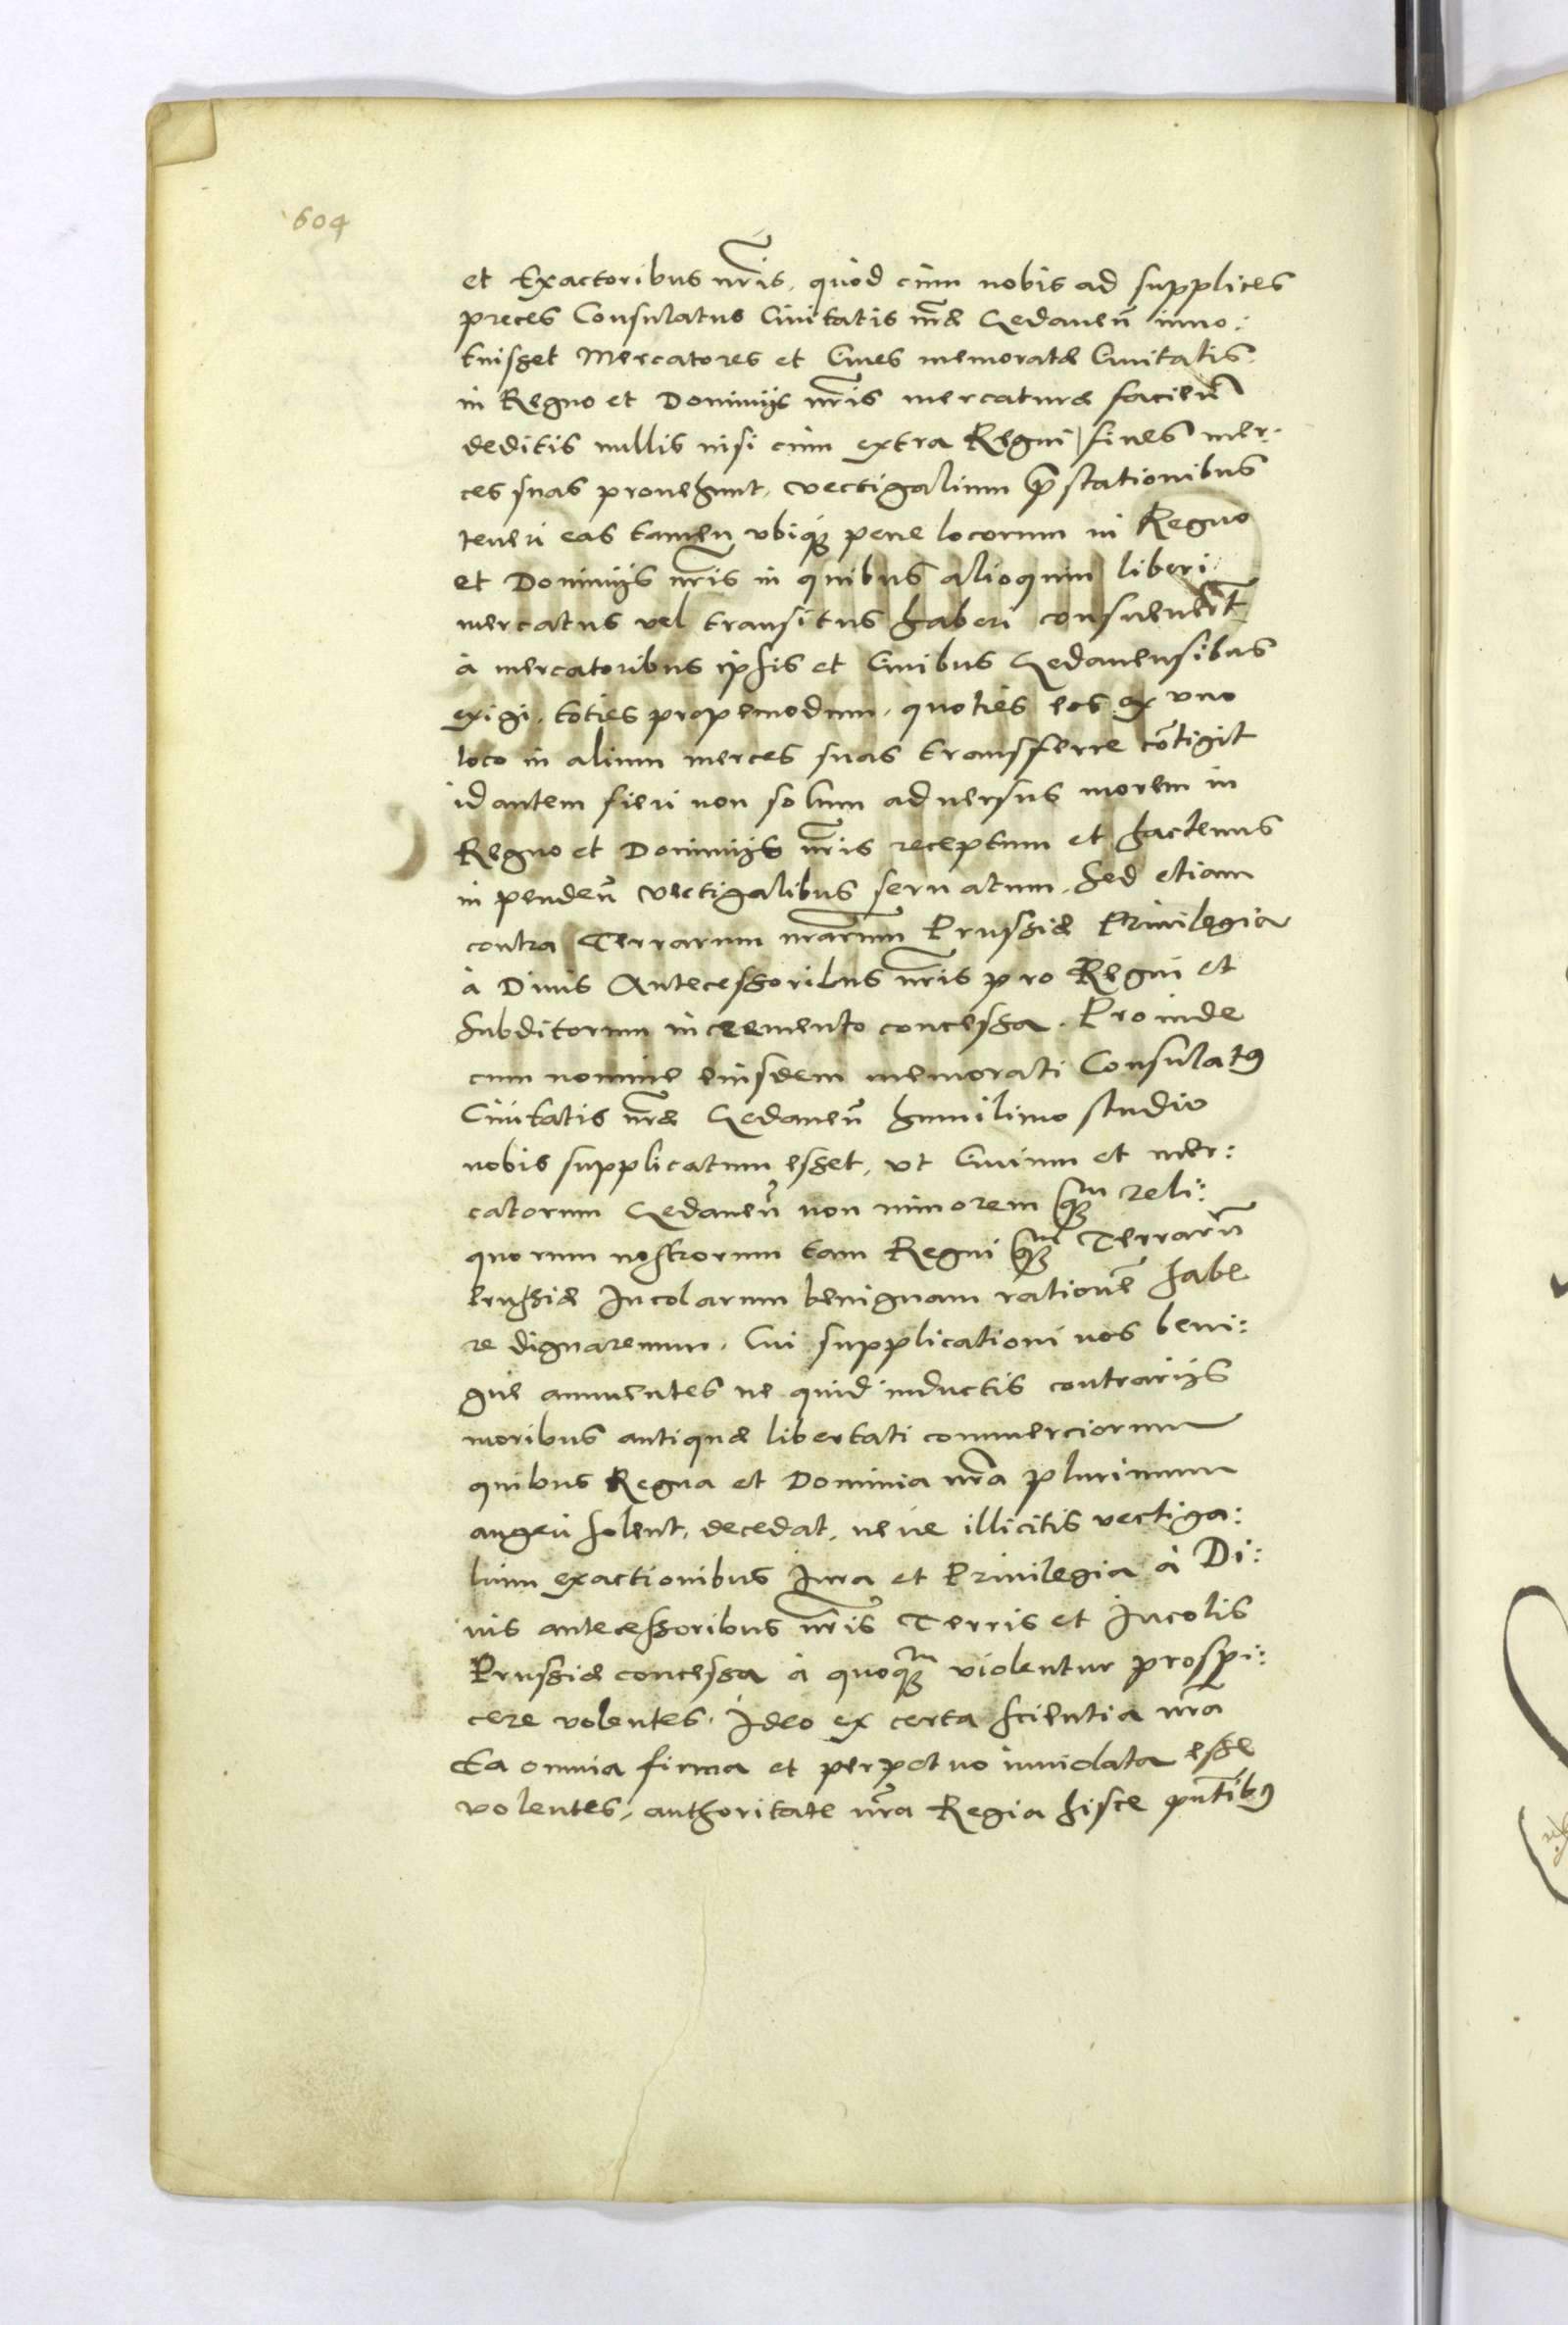 604
et Exactoribus nr̃is, quòd cùm nobis ad supplices
preces Consulatus Ciuitatis nr̃æ Gedaneñ inno:
tuisset Mercatores et Ciues memoratæ Ciuitatis
in Regno et Dominijs nr̃is mercaturæ facieñ
deditis nullis nisi cùm extra Regni fines mer:
ces suas prouehunt, vectigalium p̃stationibus
teneri eas tamen vbiq; pene locorum in Regno
et Dominijs nr̃is in quibus alioquin liberi
mercatus vel transitus haberi consueuer̃t
à mercatoribus ipsis et Ciuibus Gedanensibus
exigi, toties propemodum, quoties eos ex vno
loco in alium merces suas transferre cõtigit
id autem fieri non solum aduersus morem in
Regno et Dominijs nr̃is receptum et hactenus
in pendeñ vectigalibus seruatum, sed etiam
contra Terrarum nr̃arum Prussiæ Priuilegia
à Diuis Antecessoribus nr̃is pro Regni et
subditorum incremento concessa. Proinde
cum nomine eiusdem memorati Consulatꝰ
Ciuitatis nr̃æ Gedaneñ humilimo studio
nobis supplicatum esset, vt Ciuium et mer:
catorum Gedaneñ non minorem q̃m reli:
quorum nostrorum tam Regni q̃m Terrarũ
Prussiæ Incolarum benignam rationẽ habe
re dignaremur. Cui supplicationi nos beni:
gne annuentes ne quid inductis contrarijs
moribus antiquæ libertati commerciorum
quibus Regna et Dominia nr̃a plurimum
augeri solent, decedat, neue illicitis vectiga:
lium exactionibus Iura et Priuilegia à Di:
uis antecessoribus nr̃is Terris et Incolis
Prussiæ concessa à quoq̃m violentur prospi:
cere volentes. Ideo ex certa scientia nr̃a
Ea omnia firma et perpetuo inuiolata esse
volentes, authoritate nr̃a Regia hisce pñtibꝰ